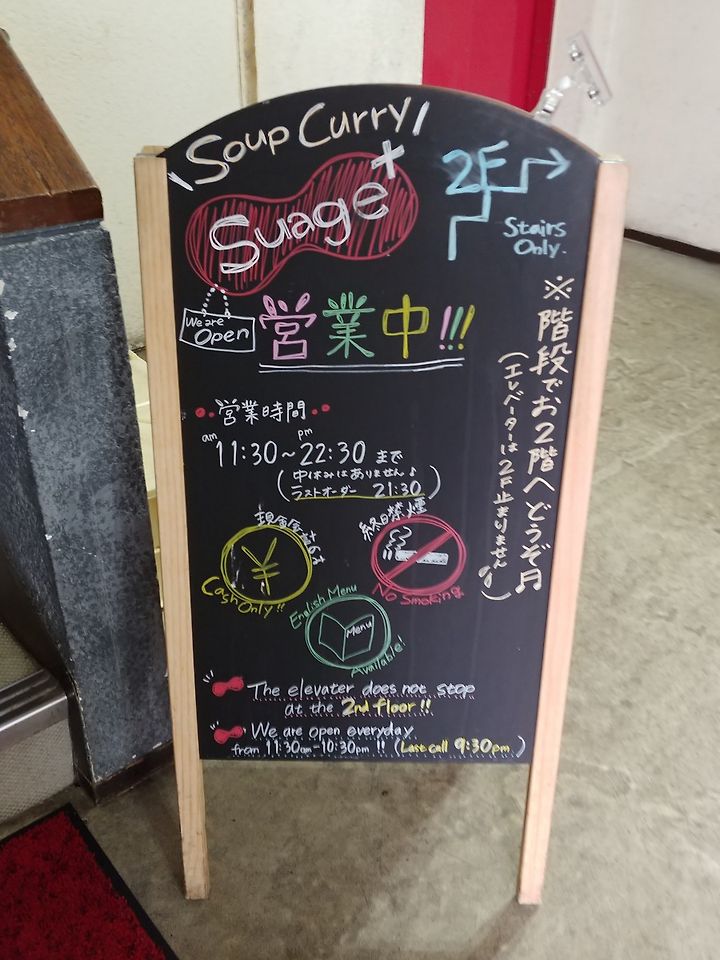 Soup Curry
Suage+
2F
Stairs
Only.
We are
Open
営業中!!!
※階段でお2階へどうぞ♬
(エレベーターは2F止まりません)
営業時間
am 11:30~pm 22:30 まで
(中休みはありません♪
ラストオーダー 21:30)
Cash Only!!
終日禁煙
No Smoking
English Menu
Menu
Available!
The elevater does not stop
at the 2nd floor!!
We are open everyday.
from 11:30am-10:30pm !! (Last call 9:30pm)